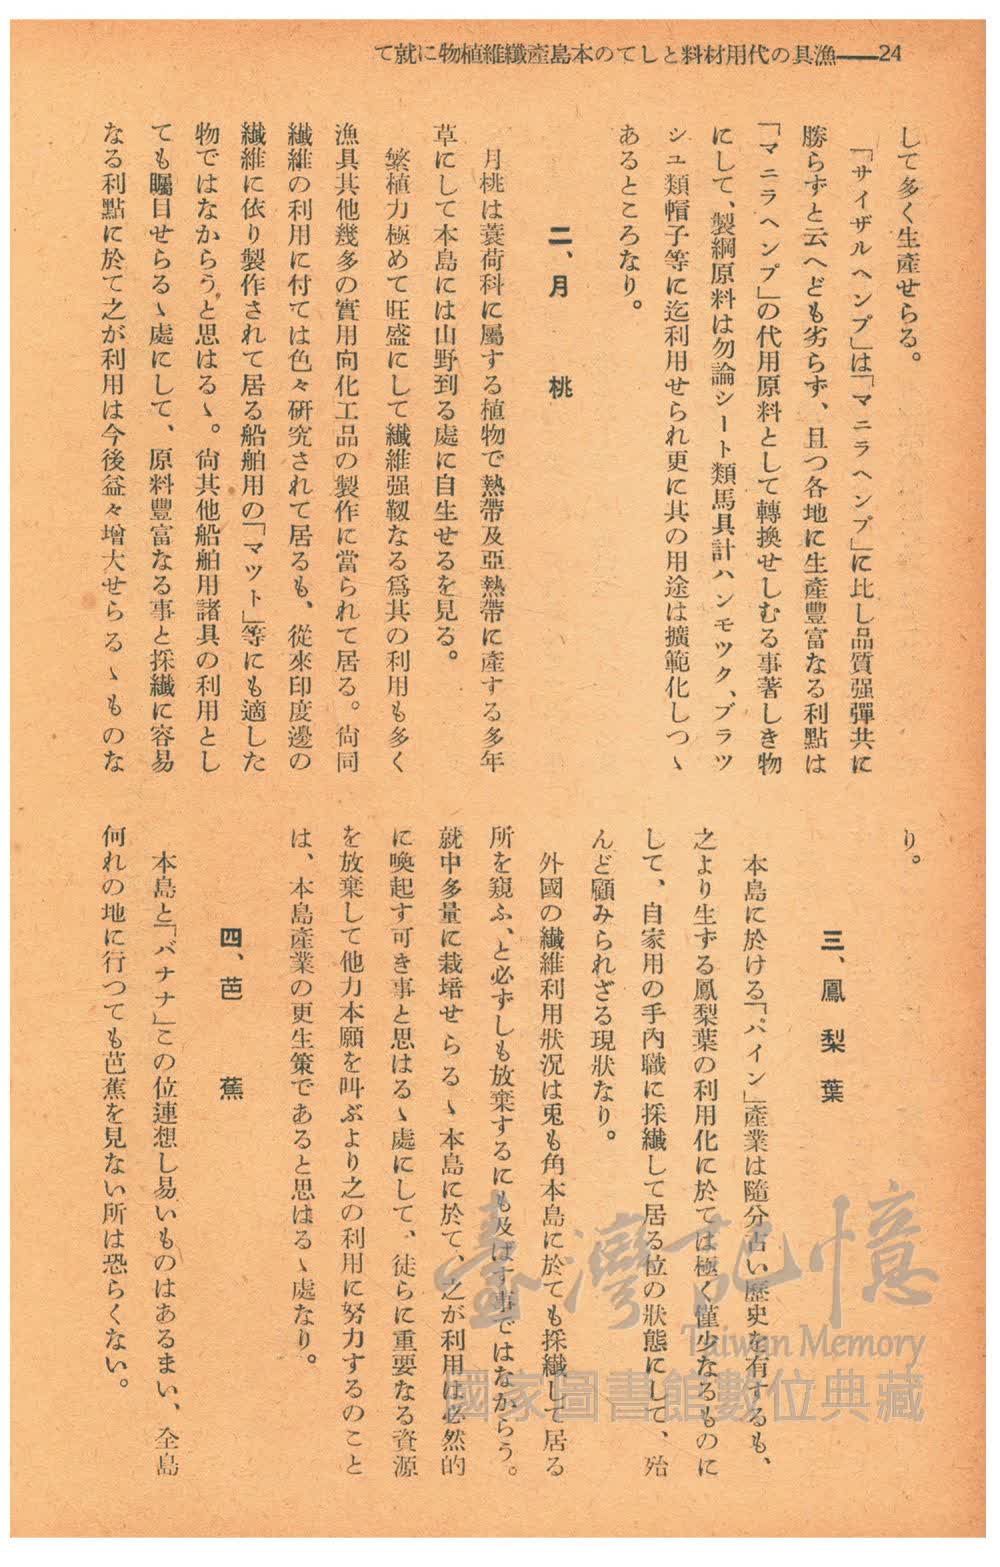 漁具の代用材料としての本島產纖維植物に就て——24
して多く生產せらる。
「サイザルヘンプ」は「マニラヘンプ」に比し品質强彈共に
勝らずと云へども劣らず、且つ各地に生產豐富なる利點は
「マニラヘンプ」の代用原料として轉換せしむる事著しき物
にして、製綱原料は勿論シート類馬具計ハンモツク、ブラツ
シユ類帽子等に迄利用せられ更に其の用途は擴範化しつゝ
あるところなり。
二、月桃
月桃は蘘荷科に屬する植物で熱帶及亞熱帶に產する多年
草にして本島には山野到る處に自生せるを見る。
繁植力極めて旺盛にして纖維强靱なる爲其の利用も多く
漁具其他幾多の實用向化工品の製作に當られて居る。尙同
纖維の利用に付ては色々研究されて居るも、從來印度邊の
纖維に依り製作されて居る船舶用の「マツト」等にも適した
物ではなからうと思はるゝ。尙其他船舶用諸具の利用とし
ても矚目せらるゝ處にして、原料豐富なる事と採纖に容易
なる利點に於て之が利用は今後益々增大せらるゝものな
り。
三、鳳梨葉
本島に於ける「パイン」產業は隨分占い歷史を有するも、
之より生ずる鳳梨葉の利用化に於ては極く僅少なるものに
して、自家用の手內職に採纖して居る位の狀態にして、殆
んど顧みられざる現狀なり。
外國の纖維利用狀況は兎も角本島に於ても採纖して居る
所を窺ふ、と必ずしも放棄するにも及ばす事ではなからう。
就中多量に栽培せらるゝ本島に於て、之が利用は必然的
に喚起す可き事と思はるゝ處にして、徒らに重要なる資源
を放棄して他力本願を叫ぶより之の利用に努力するのこと
は、本島產業の更生策であると思はるゝ處なり。
四、芭蕉
本島と「バナナ」この位連想し易いものはあるまい、全島
何れの地に行つても芭蕉を見ない所は恐らくない。
臺灣記憶
Taiwan Memory
國家圖書館數位典藏